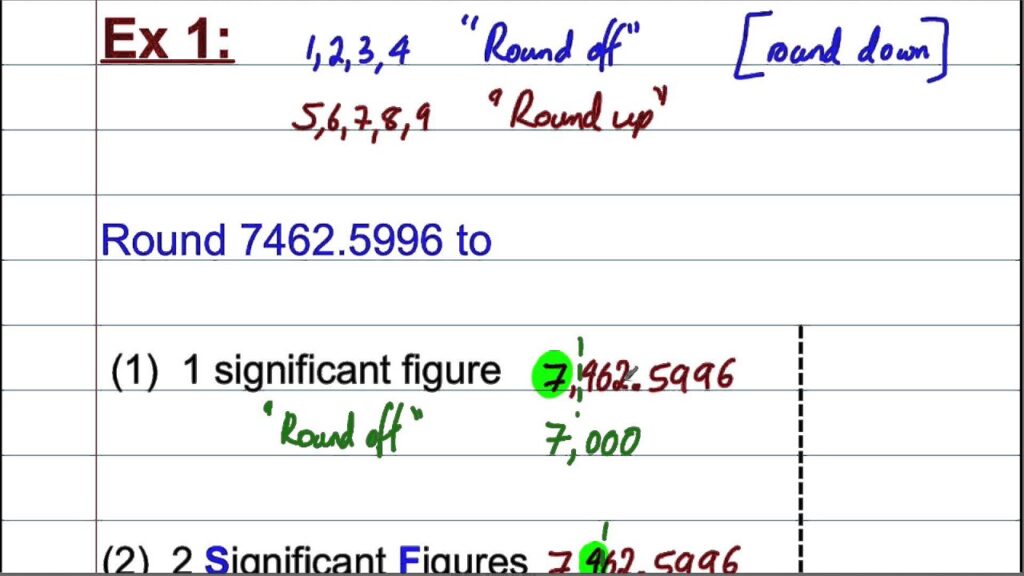 Ex 1: 1,2,3,4 "Round off" [round down]
5,6,7,8,9 "Round up"
Round 7462.5996 to
(1) 1 significant figure 7,462.5996
"Round off" 7,000
(2) 2 Significant Figures 7 462.5996